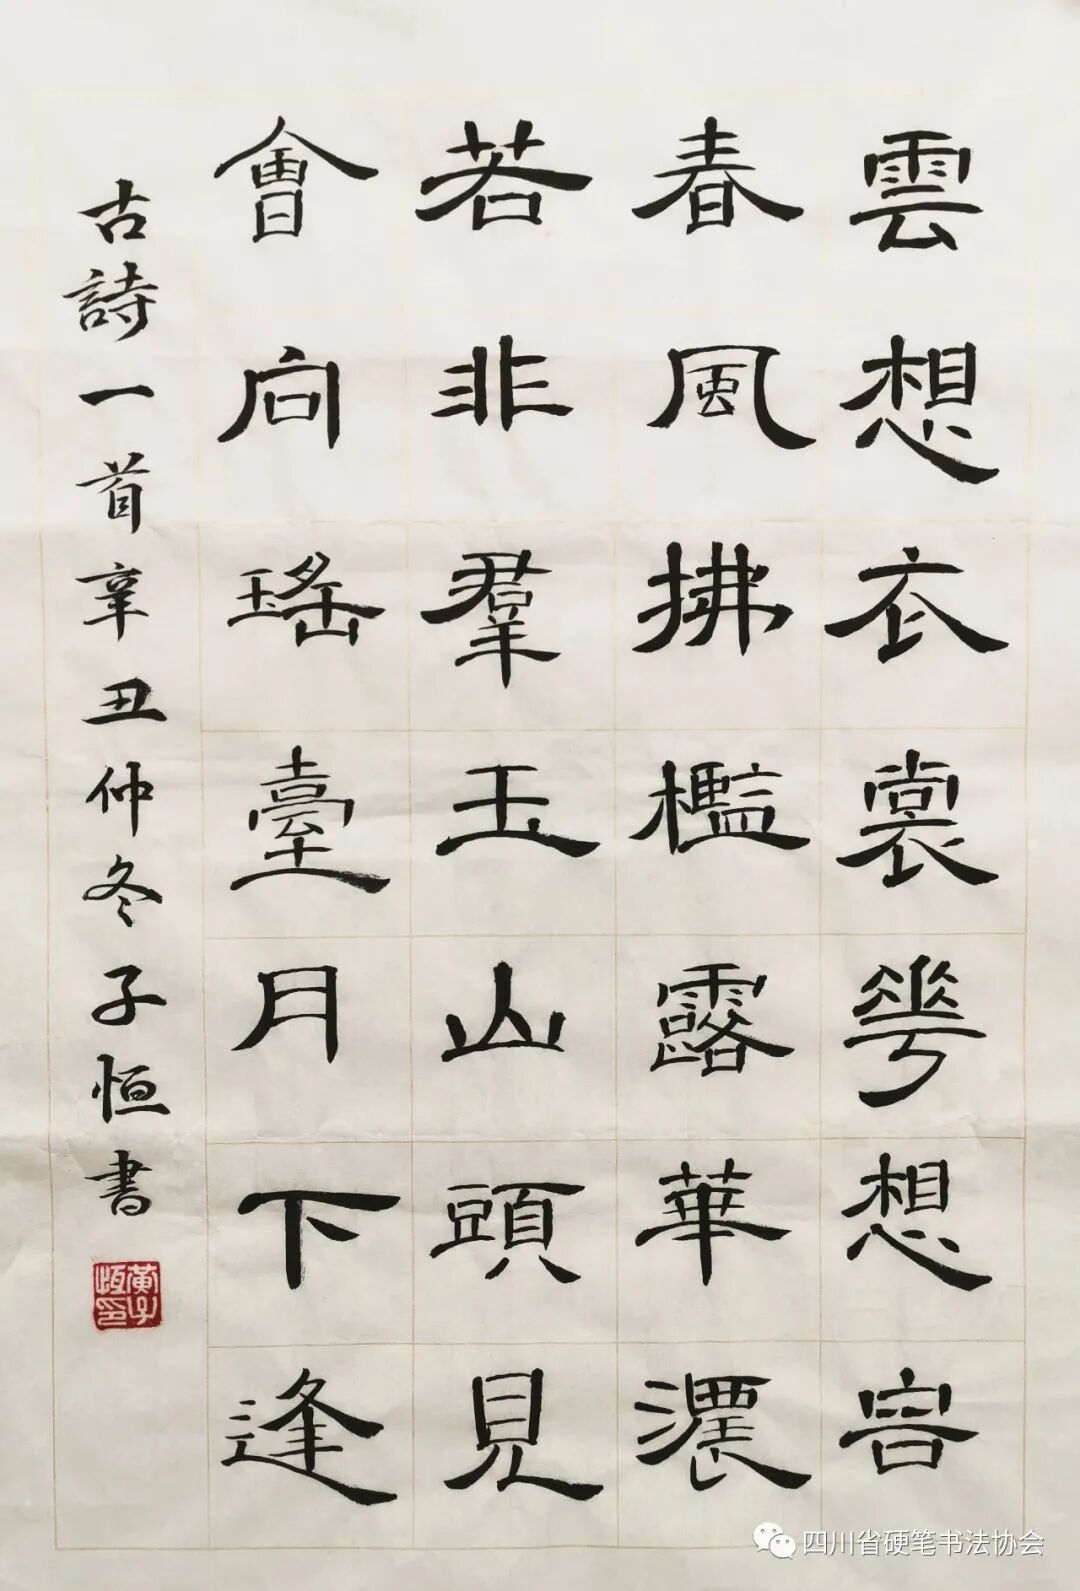 雲想衣裳花想容
春風拂檻露華濃
若非羣玉山頭見
會向瑤臺月下逢
古詩一首辛丑仲冬子恒書
黄子恆印
四川省硬笔书法协会